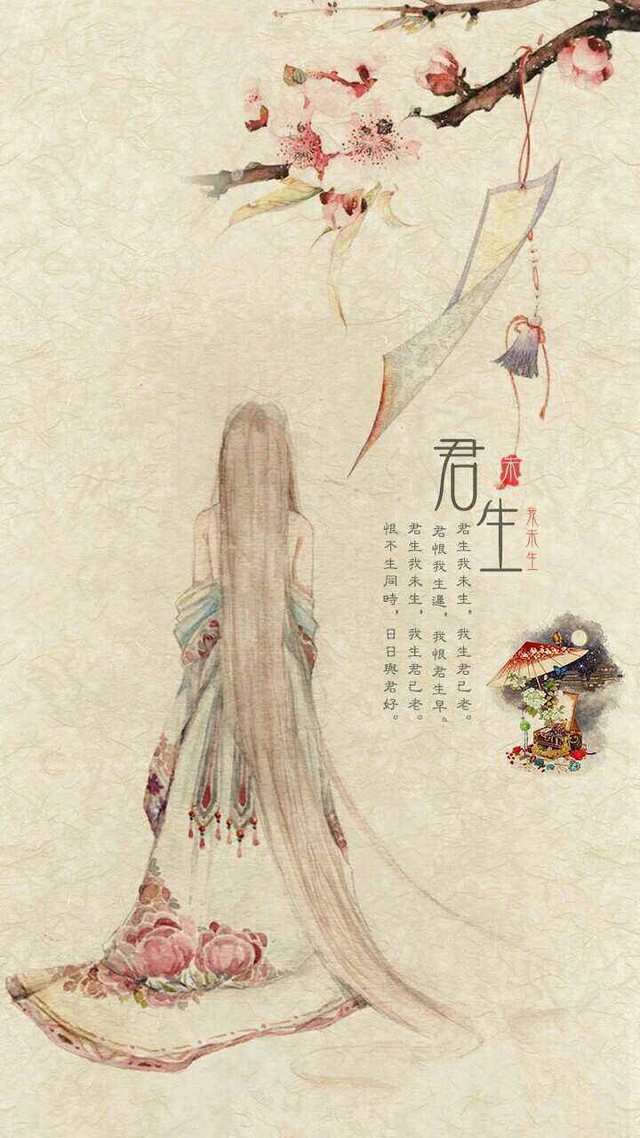 君生
我未生
君生我未生，我生君已老。
君恨我生遲，我恨君生早。
君生我未生，我生君已老。
恨不生同時，日日與君好。